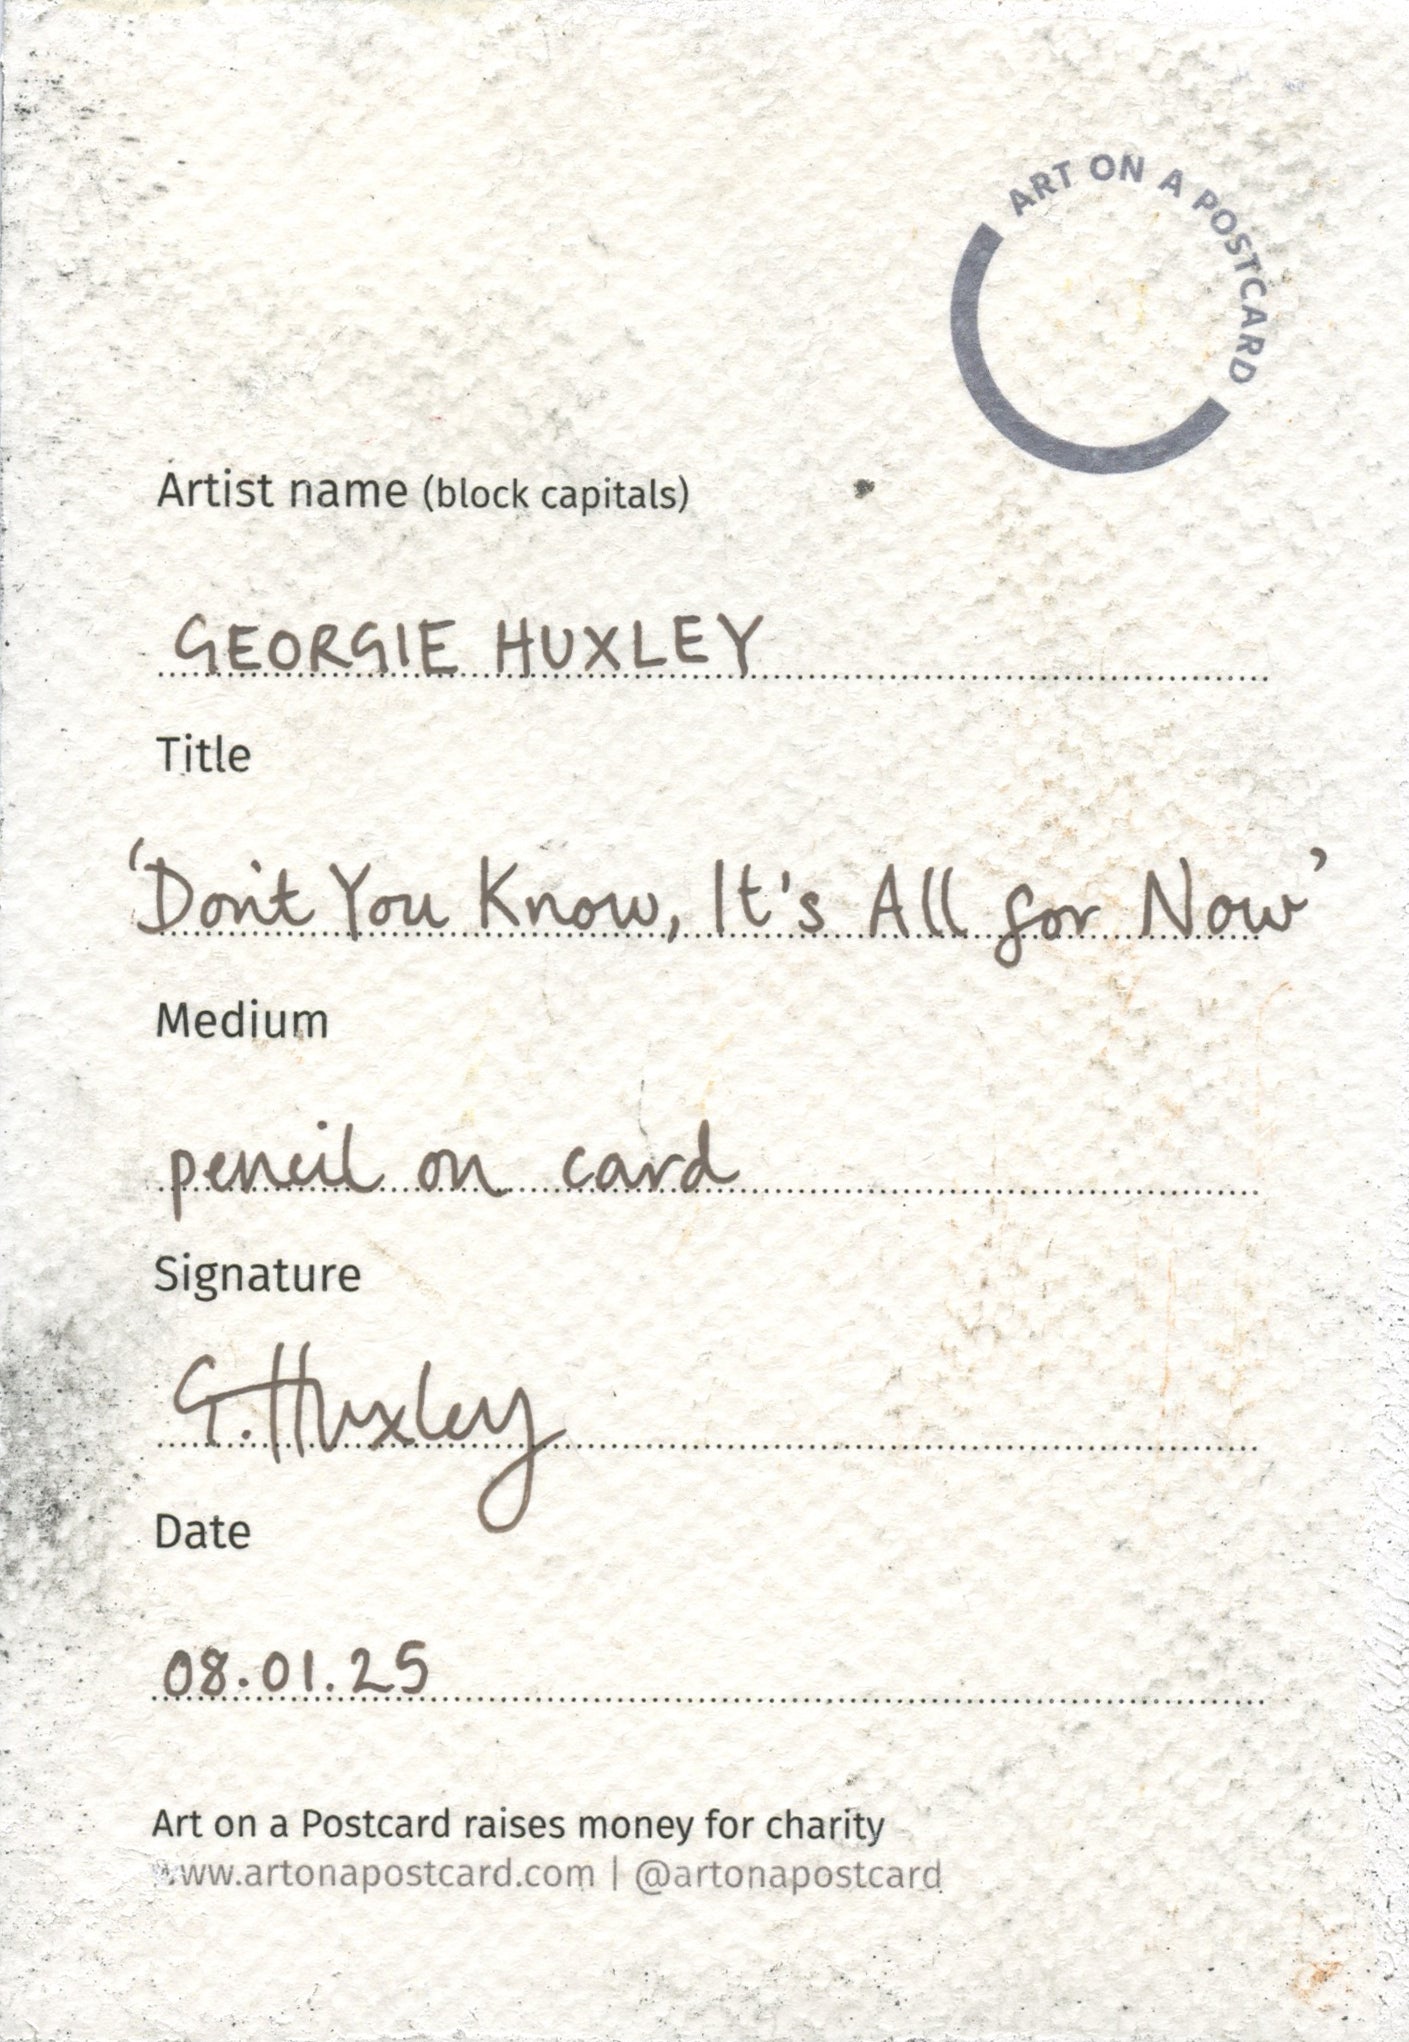 ART ON A POSTCARD
Artist name (block capitals)
GEORGIE HUXLEY
Title
'Don't You Know, It's All for Now'
Medium
pencil on card
Signature
G. Huxley
Date
08.01.25
Art on a Postcard raises money for charity
www.artonapostcard.com | @artonapostcard